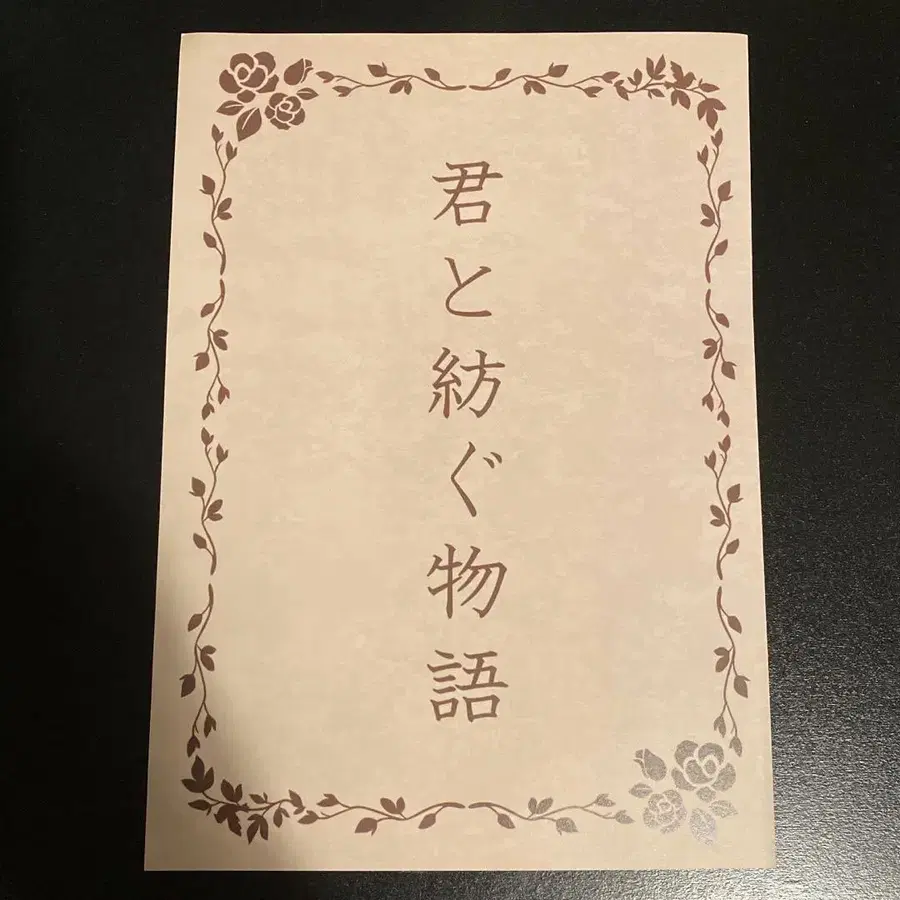 君と紡ぐ物語